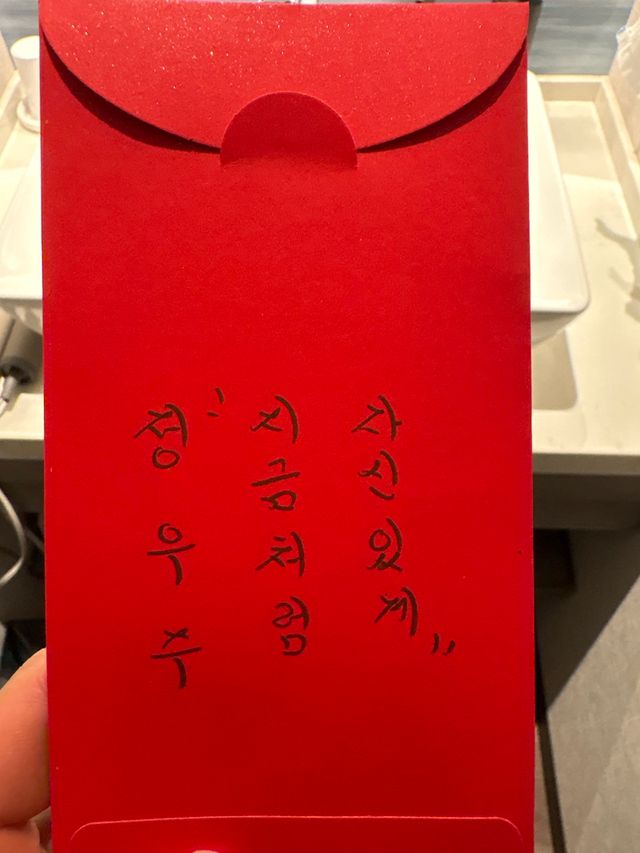 정우주
"지금처럼
자신있게"